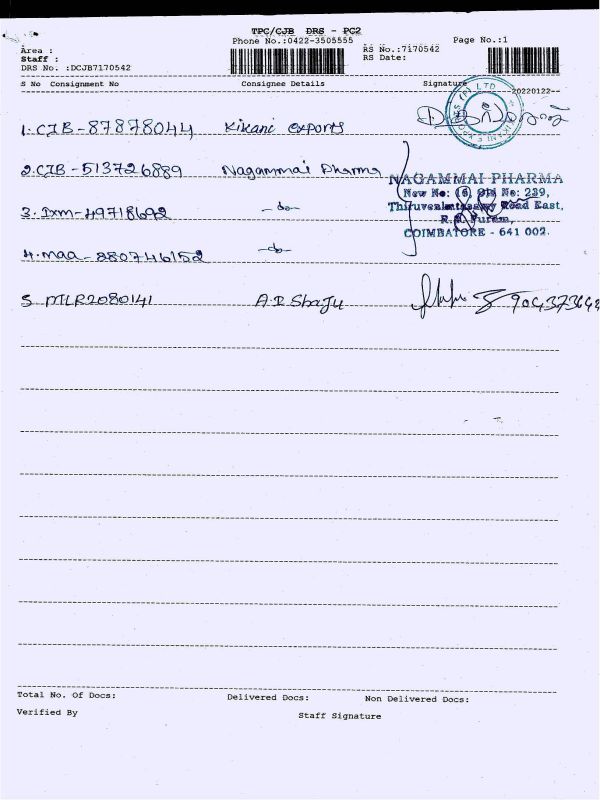 TPC/CJB DRS - PC2
Phone No.:0422-3505555
Page No.:1
Area :
RS No.:7170542
Staff :
RS Date:
DRS No. :DCJB7170542
S No Consignment No Consignee Details Signature
20220122--
1. CJB-87878044 Kikani exports
2. CJB-513726889 Nagammai Pharma
NAGAMMAI PHARMA
New No: 16, Old No: 239,
Thiruvenkatasamy Road East,
R.S. Puram,
COIMBATORE - 641 002.
3. Ixm-49718692 -do-
4. maa-880746152 -do-
5. MLR2080141 A.R Shaju
Total No. Of Docs: Delivered Docs: Non Delivered Docs:
Verified By Staff Signature